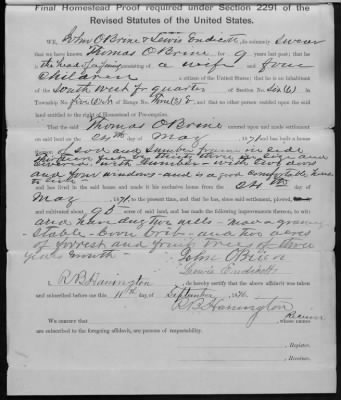 Final Homestead Proof required under Section 2291 of the
Revised Statutes of the United States.
WE, John O'Brine & Lewis Endicott, do solemnly swear
that we have known Thomas O'Brine for 9 years last past; that he
is the head of a family consisting of a wife and four
Children a citizen of the United States; that he is an inhabitant
of the South West fr quarter of Section No. Six (6) in
Township No. of Range No. and that no other person resided upon the said
land entitled to the right of Homestead or Pre-emption.
That the said Thomas O'Brine entered upon and made settlement
on said land on the day of May 1871 and built a house
of sod and Lumber frame in side
with two doors
and four windows and is a good comfortable house
to live
and has lived in the said house and made it his exclusive home from the day of
May 1871, to the present time; that he has, since said settlement, plowed,
and cultivated about 95 acres of said land, and has made the following improvements thereon, to wit:
and has dug two wells
Stable Corn Crib and two acres
of forrest and fruit trees of three
Years Growth John O'Brien
Lewis Endicott
I, R. B. Harrington, do hereby certify that the above affidavit was taken
and subscribed before me this 11th day of September 1876.
R. B. Harrington
Receiver
We certify that whose names
are subscribed to the foregoing affidavit, are persons of respectability.
, Register.
, Receiver.